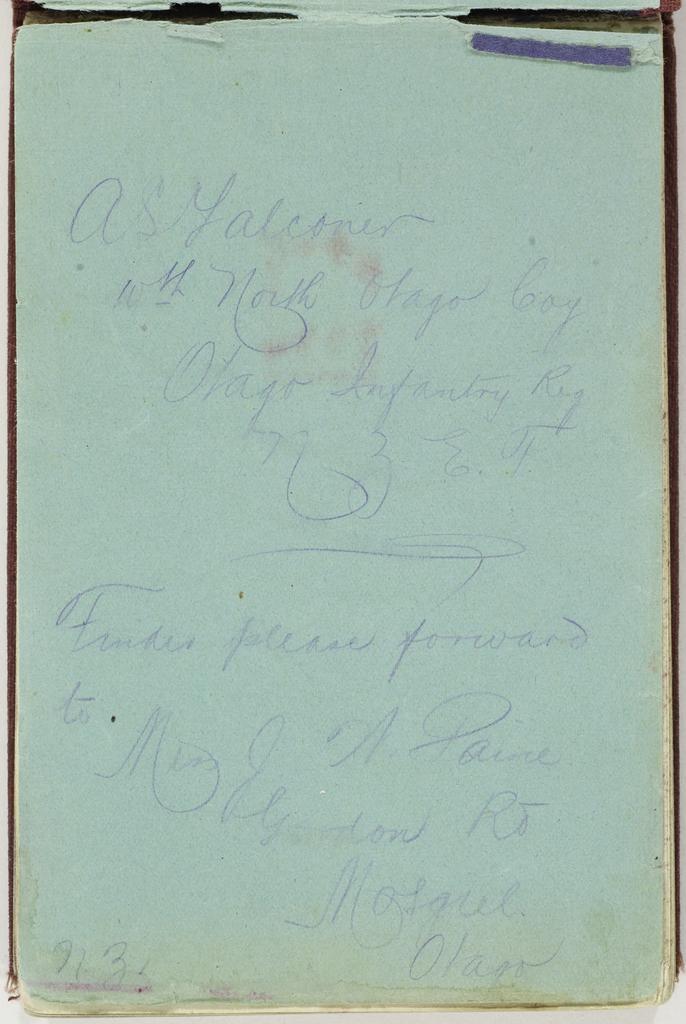 A S Falconer
10th North Otago Coy
Otago Infantry Reg
N Z E. F.
Finder please forward
to
Mrs J W. Paine
Gordon Rd
Mosgiel.
Otago
N. Z.